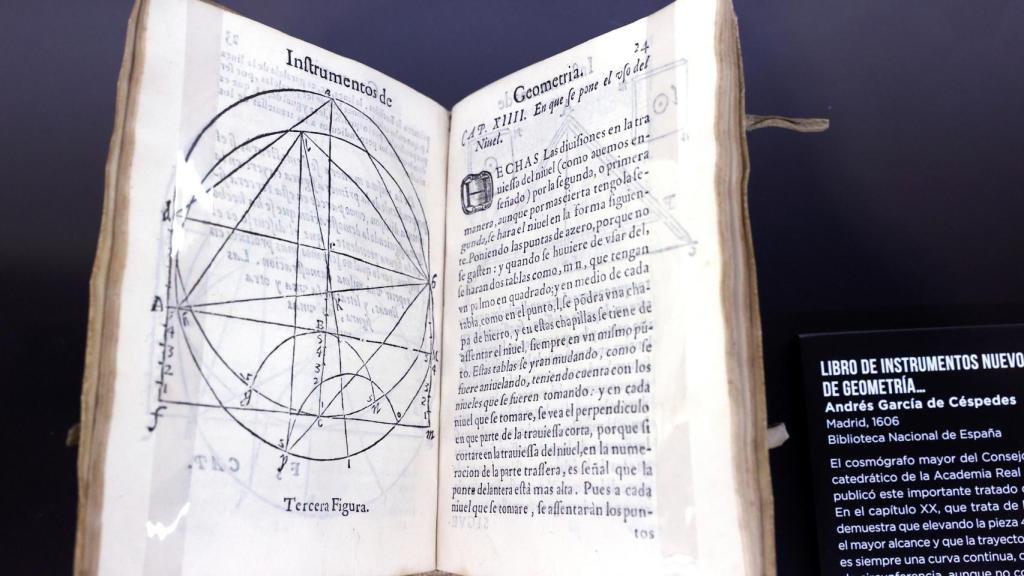 Instrumentos de
Tercera Figura.
24
Geometria.
CAP. XIIII. En que se pone el vso del
Niuel.
DECHAS Las diuisiones en la tra
uiessa del niuel (como auemos en-
señado) por la segunda, o primera
manera, aunque por mas cierta tengo la se-
gunda, se hara el niuel en la forma siguien-
te. Poniendo las puntas de azero, porque no
se gasten: y quando se huuiere de vsar del,
se haran dos tablas como, m n, que tengan
vn palmo en quadrado; y en medio de cada
tabla, como en el punto, l, se pōdra vna cha-
pa de hierro, y en estas chapillas se tiene de
assentar el niuel, siempre en vn mismo pū-
to. Estas tablas se yran mudando, como se
fuere aniuelando, teniendo cuenta con los
niueles que se fueren tomando: y en cada
niuel que se tomare, se vea el perpendiculo
en que parte de la trauiessa corta, porque si
cortare en la trauiessa del niuel, en la nume-
racion de la parte trassera, es señal que la
punta delantera està mas alta. Pues a cada
niuel que se tomare, se assentaràn los pun-
tos
LIBRO DE INSTRUMENTOS NUEVO
DE GEOMETRÍA...
Andrés García de Céspedes
Madrid, 1606
Biblioteca Nacional de España
El cosmógrafo mayor del Consejo
catedrático de la Academia Real
publicó este importante tratado
En el capítulo XX, que trata de
demuestra que elevando la pieza
el mayor alcance y que la trayecto
es siempre una curva continua,
circunferencia, aunque no